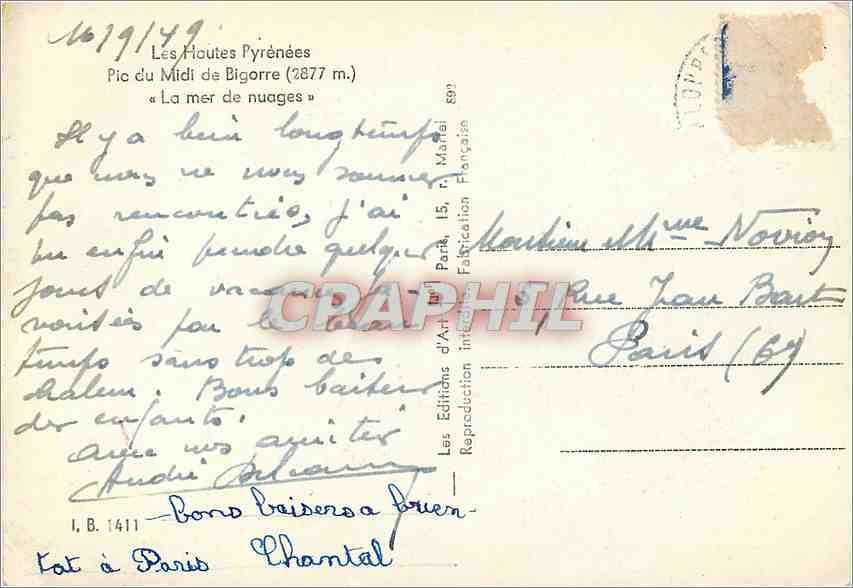 16/9/49
Les Hautes Pyrénées
Pic du Midi de Bigorre (2877 m.)
« La mer de nuages »
Il y a bien longtemps
que nous ne nous sommes
pas rencontrés, j'ai
pu enfin prendre quelques
jours de vacances fa-
vorisés par le beau
temps sans trop de
chaleur. Bons baisers
des enfants.
avec nos amitiés
André
I. B. 1411
bons baisers a bien
tot à Paris Chantal
Les Editions d'Art Paris, 15, r. Martel 892
Reproduction interdite Fabrication Française
CRAPHIL
Monsieur et Mme Novion
5, Rue Jean Bart
Paris (6e)